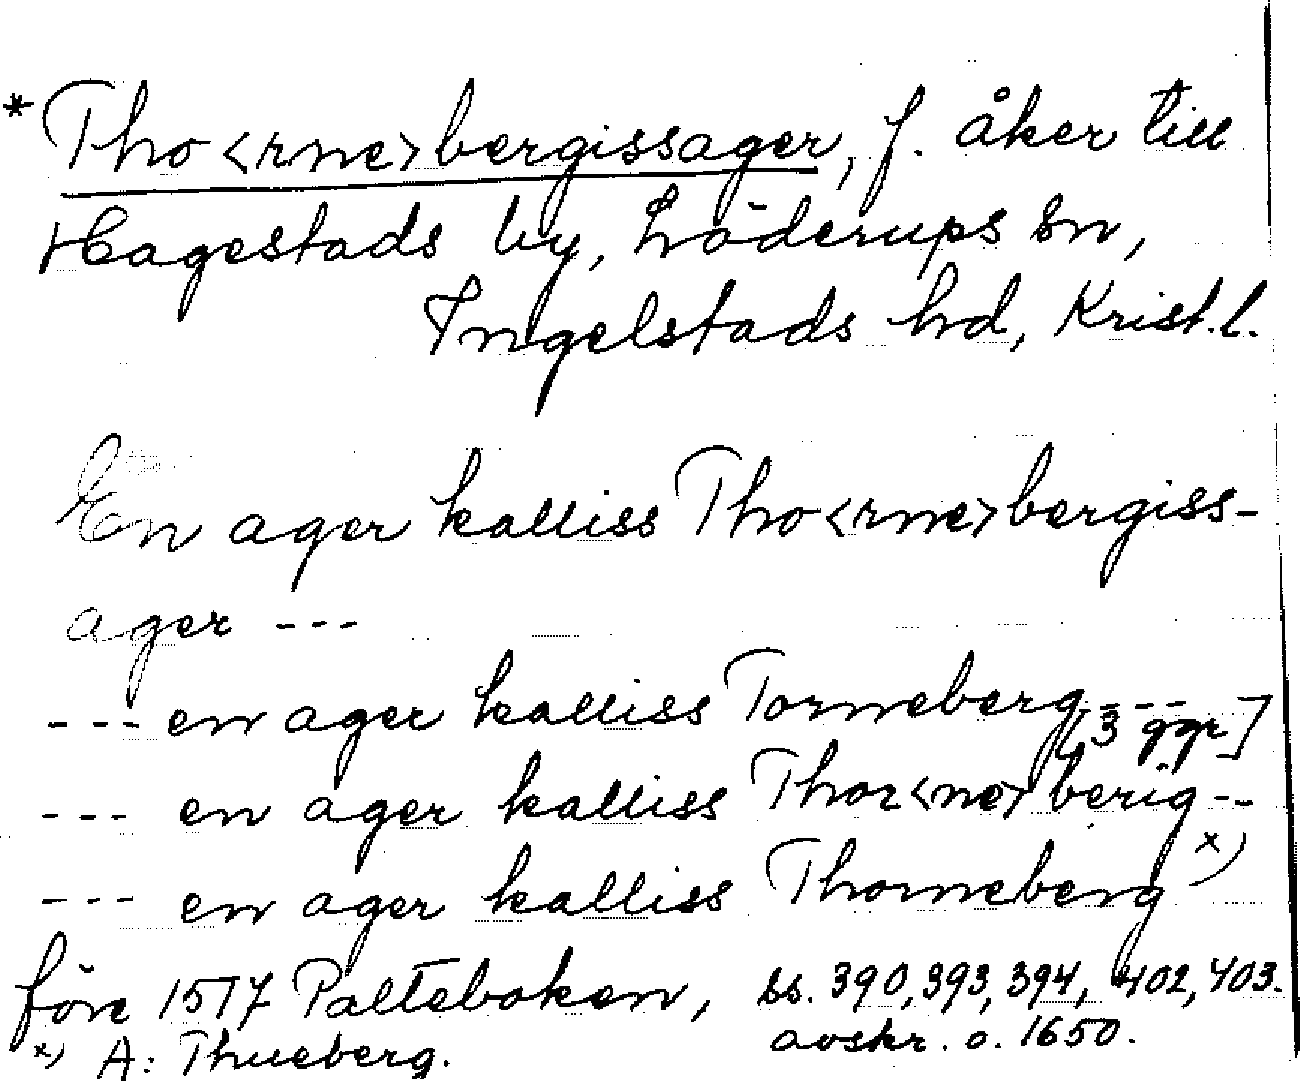 * Tho<rne>bergissager, f. åker till
Hagestads by, Löderups sn,
Ingelstads hd, Krist.l.
En ager kalliss Tho<rne>bergiss-
ager ---
--- en ager kalliss Torneberg --- [3 ggr]
--- en ager kalliss Thor<ne>berig --
--- en ager kalliss Thorneberg x)
före 1517 Palteboken, ss. 390, 393, 394, 402, 403.
avskr. o. 1650.
x) A: Thueberg.